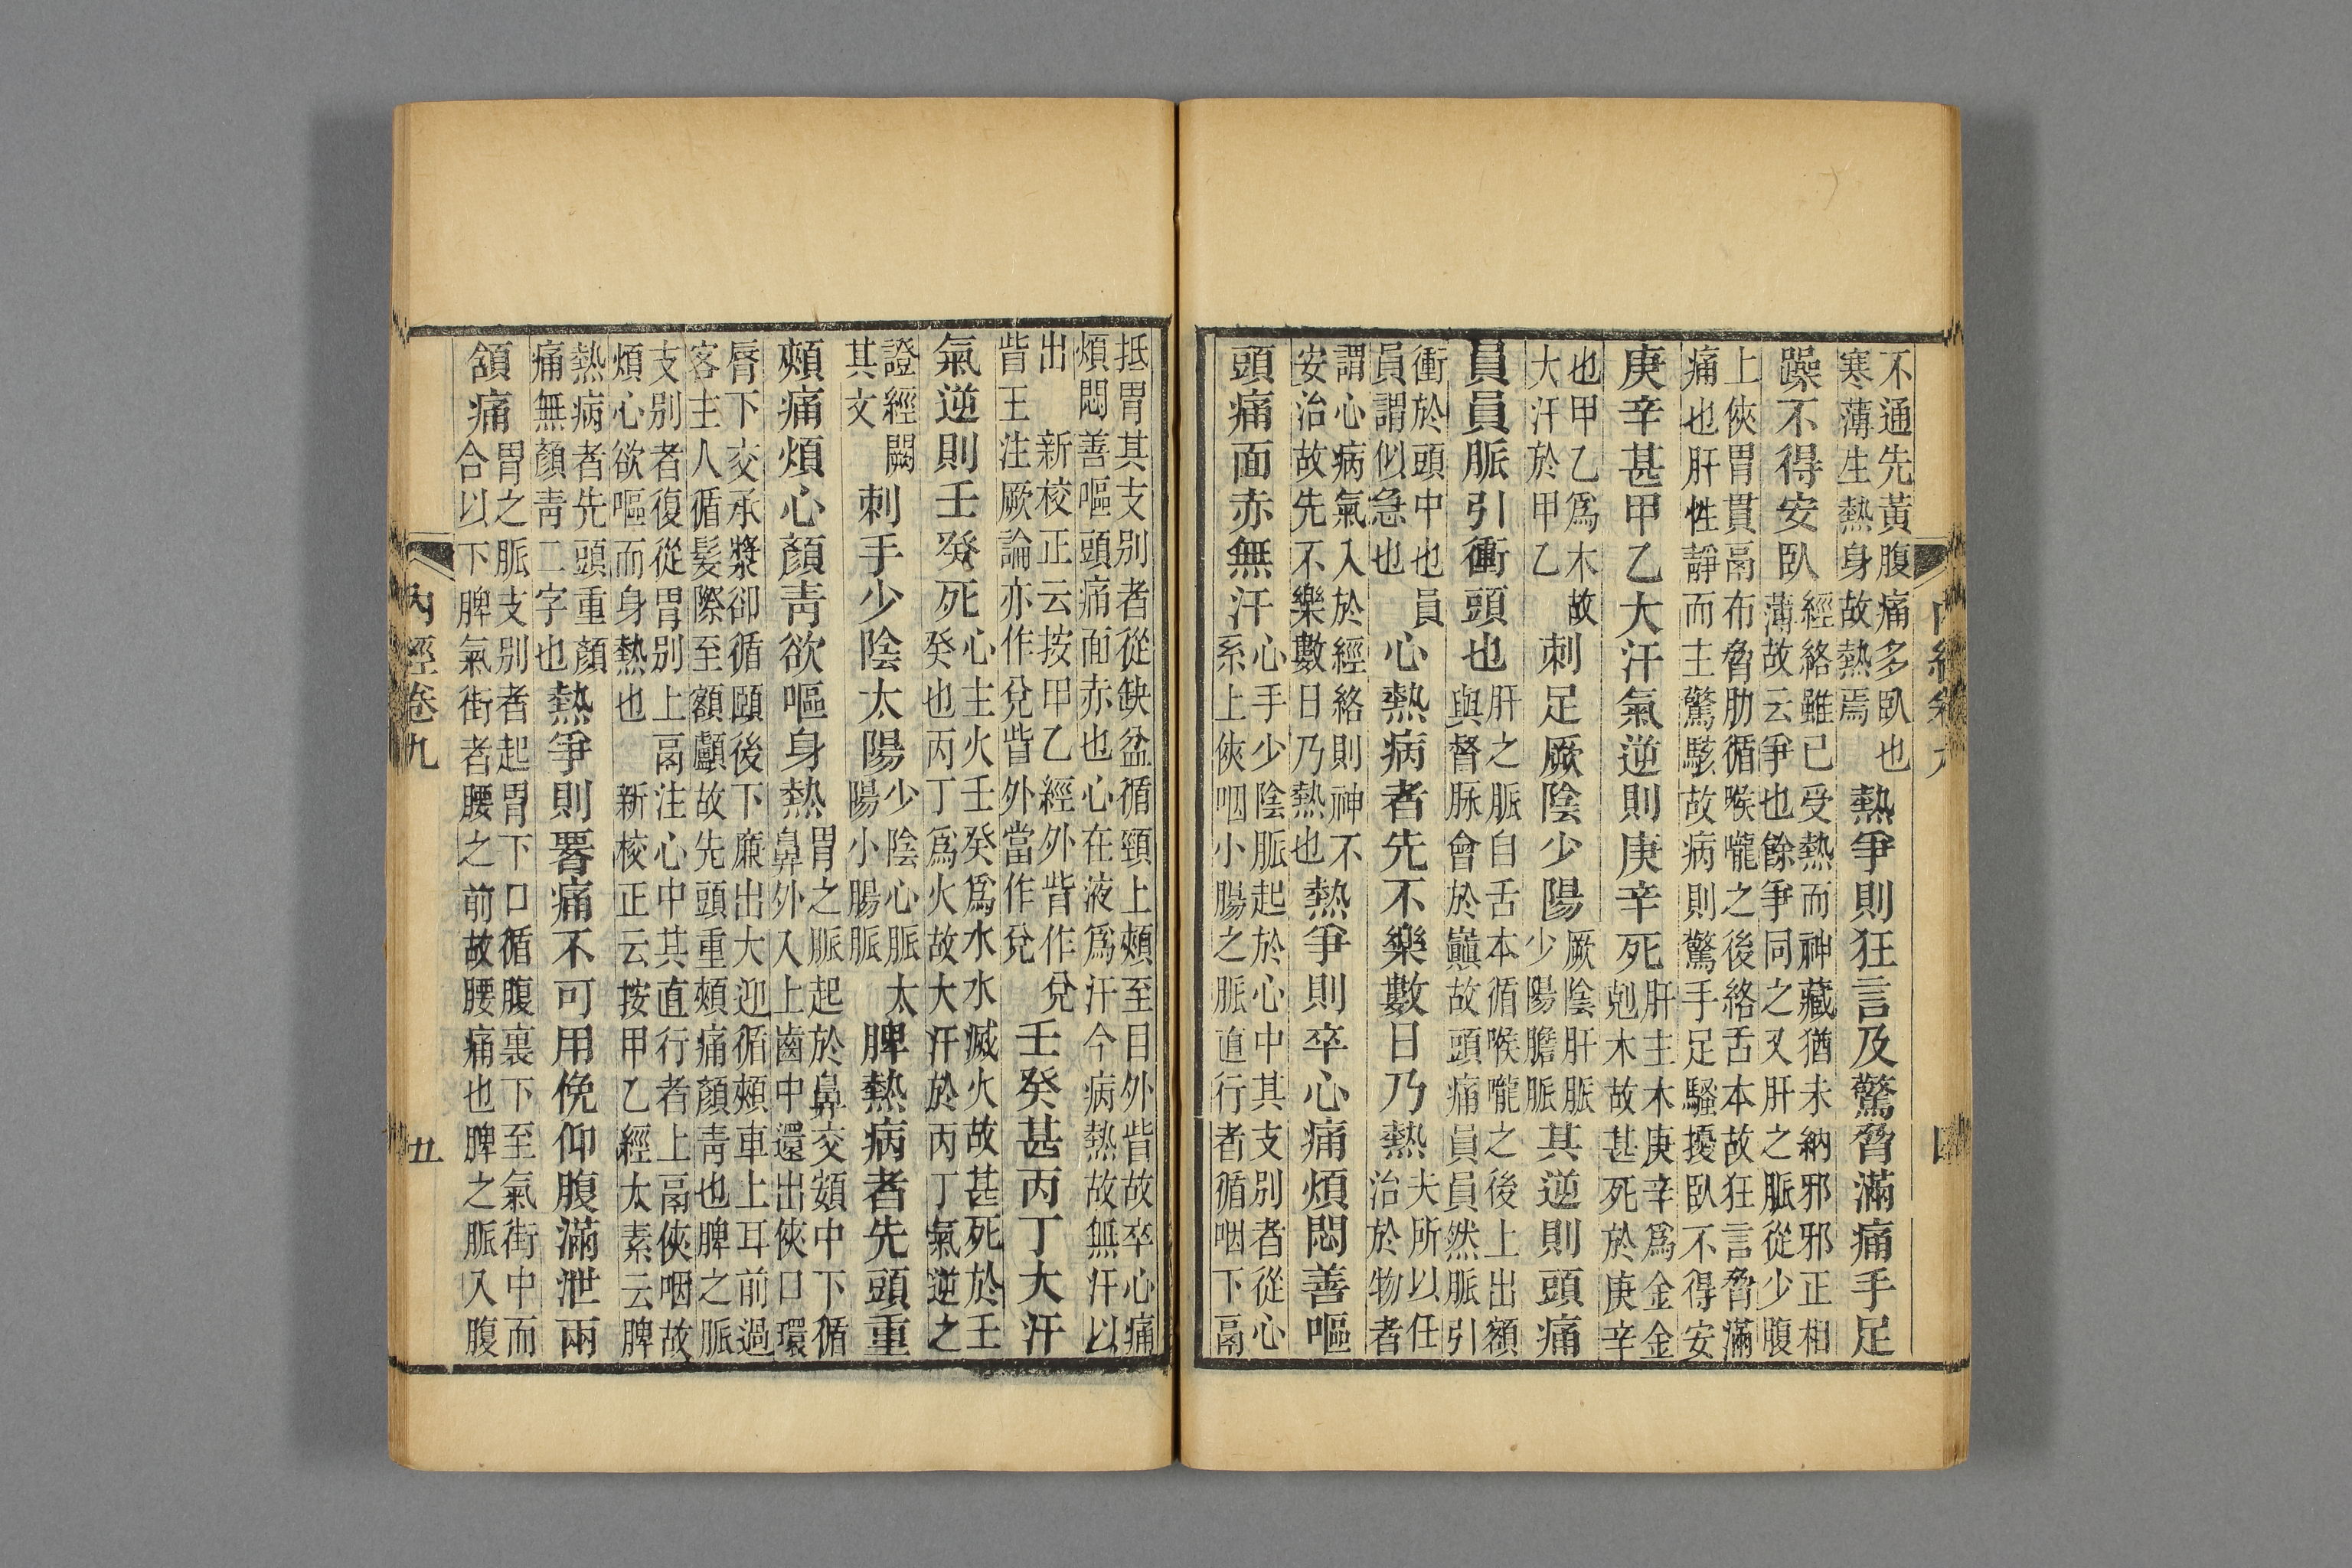 內經卷九
四
不通先黃腹痛多臥也
寒薄生熱身故熱焉
熱爭則狂言及驚脅滿痛手足
躁不得安臥
經絡雖已受熱而神藏猶未納邪邪正相
薄故云爭也餘爭同之又肝之脈從少腹
上俠胃貫鬲布脅肋循喉嚨之後絡舌本故狂言脅滿
痛也肝性靜而主驚駭故病則驚手足騷擾臥不得安
庚辛甚甲乙大汗氣逆則庚辛死
肝主木庚辛爲金金
剋木故甚死於庚辛
也甲乙爲木故
大汗於甲乙
刺足厥陰少陽
厥陰肝脈
少陽膽脈
其逆則頭痛
員員脈引衝頭也
肝之脈自舌本循喉嚨之後上出額
與督脉會於巔故頭痛員員然脈引
衝於頭中也員
員謂似急也
心熱病者先不樂數日乃熱
夫所以任
治於物者
謂心病氣入於經絡則神不
安治故先不樂數日乃熱也
熱爭則卒心痛煩悶善嘔
頭痛面赤無汗
心手少陰脈起於心中其支別者從心
系上俠咽小腸之脈直行者循咽下鬲
抵胃其支別者從缺盆循頸上頰至目外眥故卒心痛
煩悶善嘔頭痛面赤也心在液爲汗今病熱故無汗以
出 新校正云按甲乙經外眥作兌
眥王注厥論亦作兌眥外當作兌
壬癸甚丙丁大汗
氣逆則壬癸死
心主火壬癸爲水水滅火故甚死於壬
癸也丙丁爲火故大汗於丙丁氣逆之
證經闕
其文
刺手少陰太陽
少陰心脈太
陽小腸脈
脾熱病者先頭重
頰痛煩心顏靑欲嘔身熱
胃之脈起於鼻交頞中下循
鼻外入上齒中還出俠口環
脣下交承漿卻循頤後下廉出大迎循頰車上耳前過
客主人循髮際至額顱故先頭重頰痛顏靑也脾之脈
支別者復從胃別上鬲注心中其直行者上鬲俠咽故
煩心欲嘔而身熱也 新校正云按甲乙經太素云脾
熱病者先頭重顏
痛無顏靑二字也
熱爭則腰痛不可用俛仰腹滿泄兩
頷痛
胃之脈支別者起胃下口循腹裏下至氣街中而
合以下脾氣街者腰之前故腰痛也脾之脈入腹
內經卷九
五